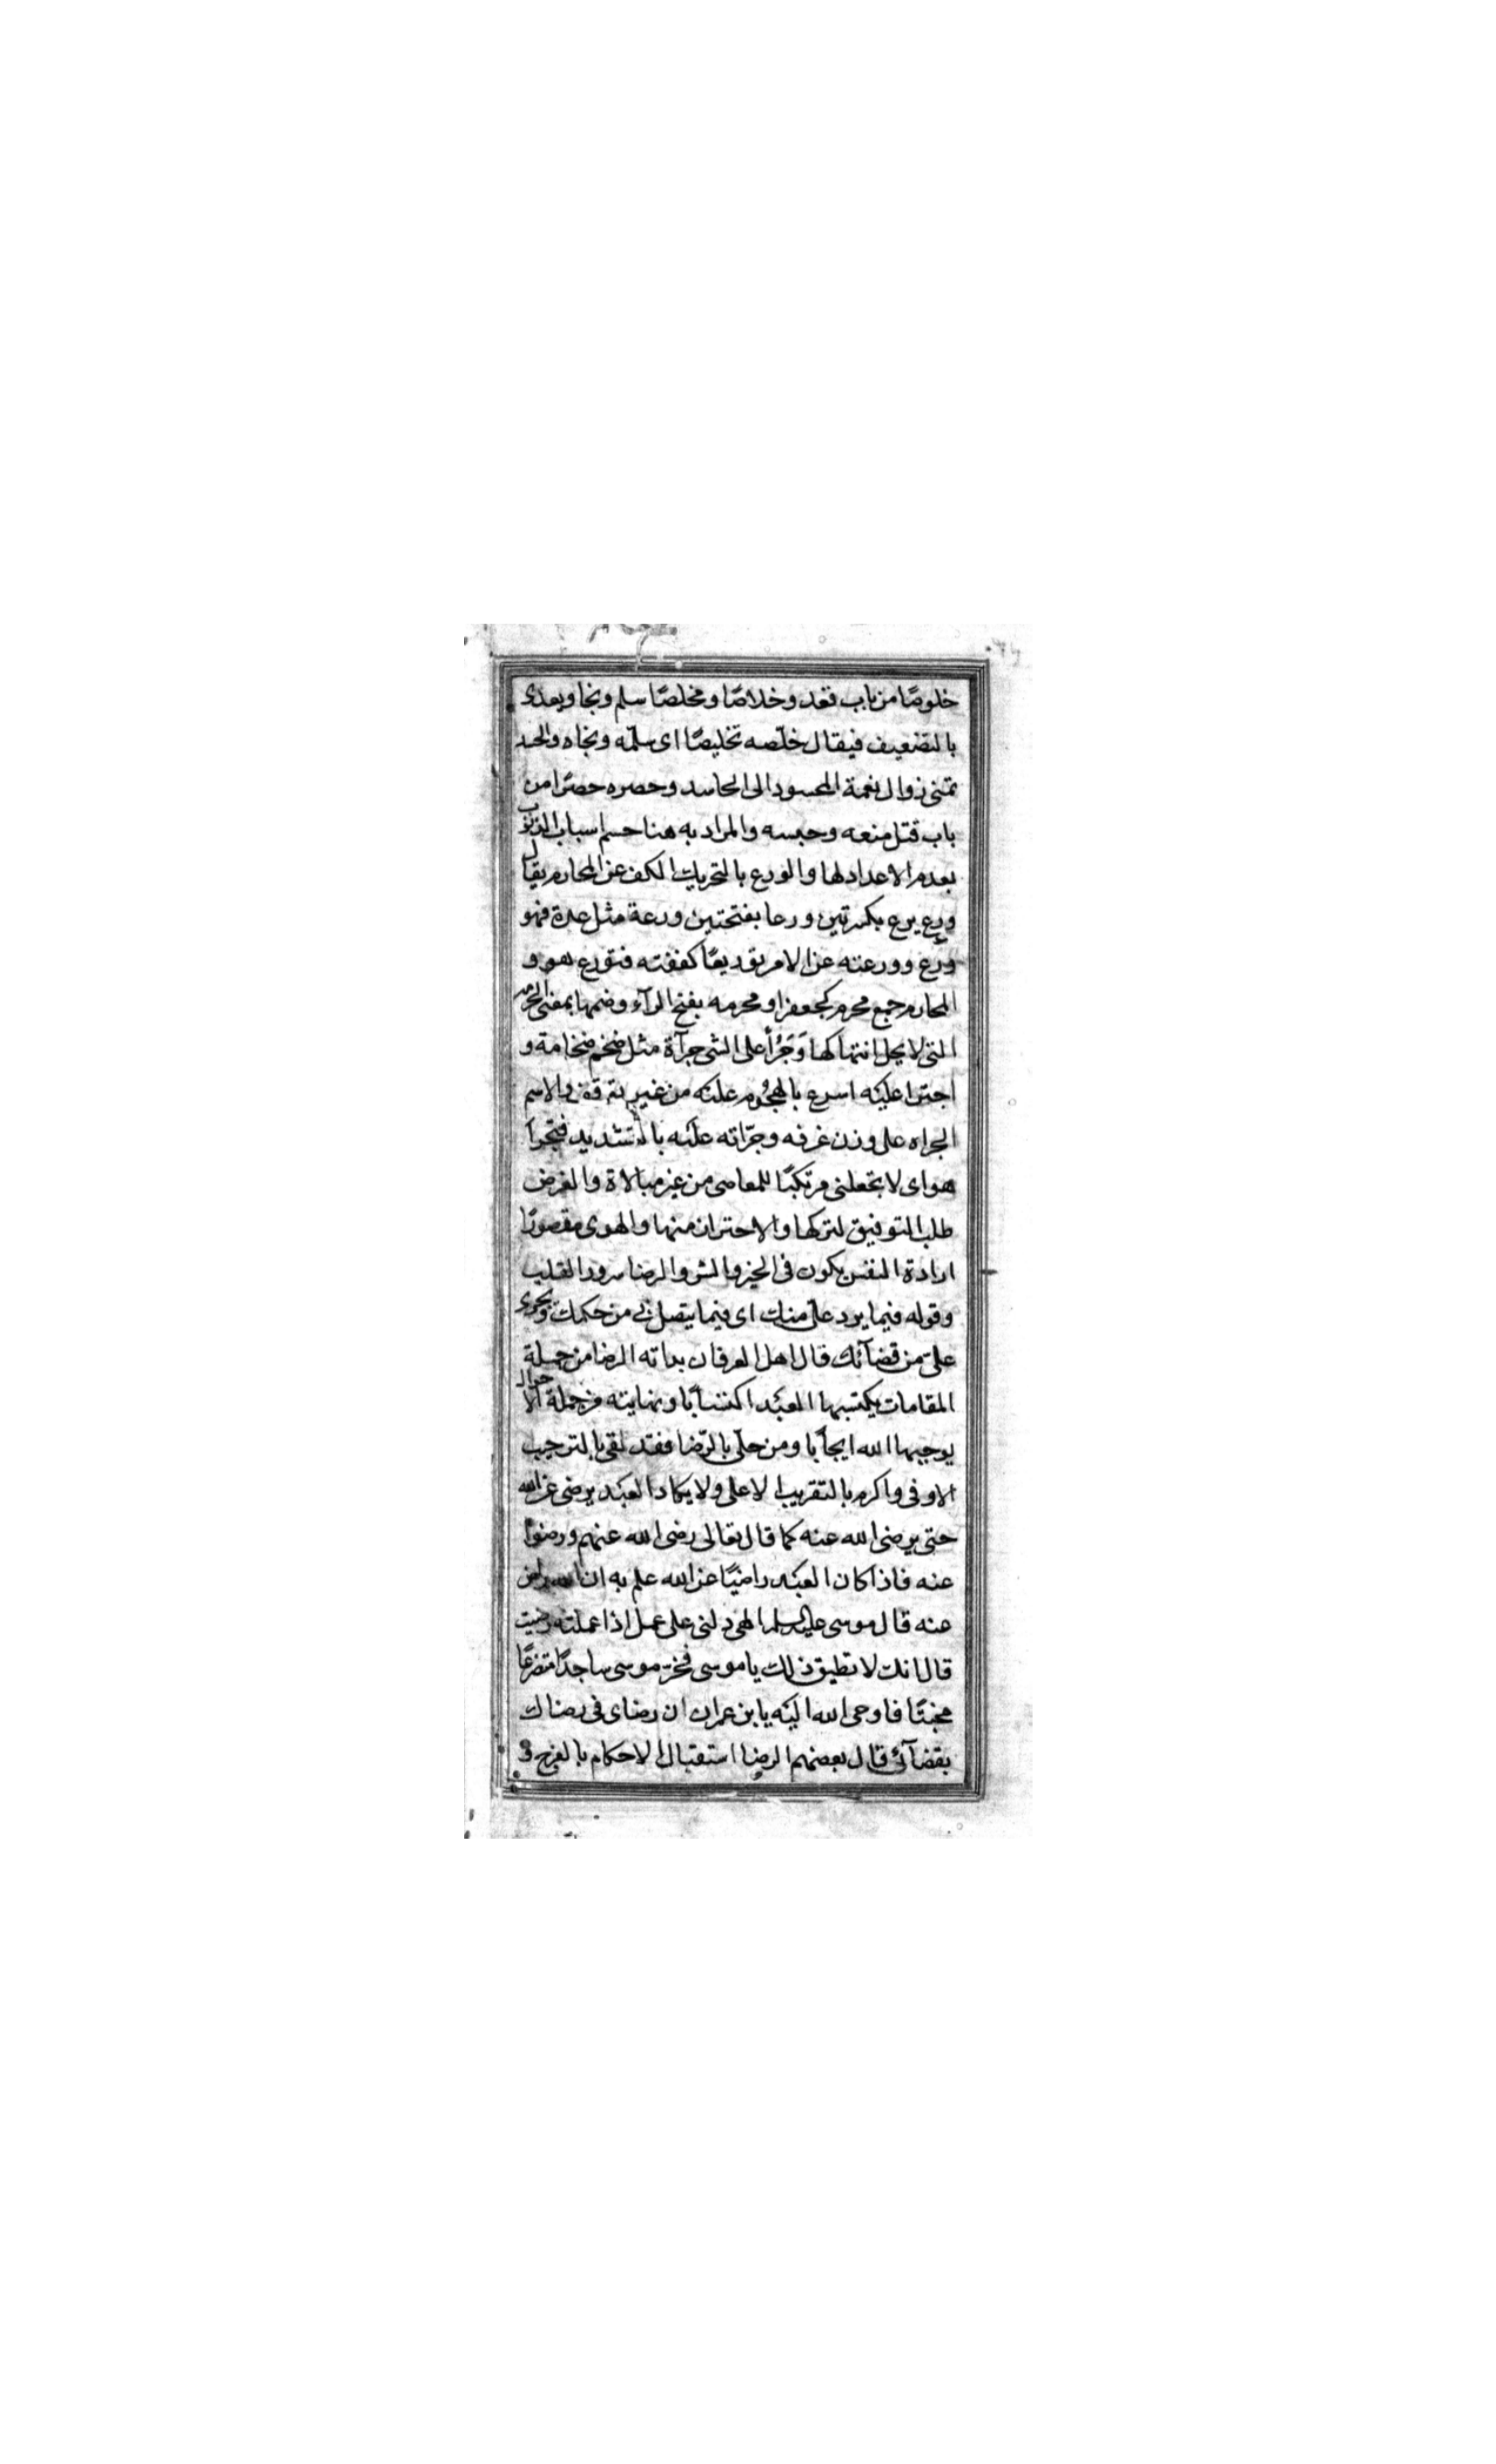 خلوصًا من باب قعد وخلاصًا ومخلصًا سلم ونجا ويعدى
بالتضعيف فيقال خلّصه تخليصًا اى سلمّه ونجاه والحسد
تمنى زوال نعمة المحسود الى الحاسد وحصره حصرًا من
باب قتل منعه وحبسه والمراد به هنا حسم اسباب الذنوب
بعدم الاعداد لها والورع بالتحريك الكف عن المحارم يقال
ورع يرع بكسرتين ورعا بفتحتين ورعة مثل عدة فهو
ورع وورعته عن الامر توريعًا كففته فتورع هو و
المحارم جمع محرم كجعفر او محرمه بفتح الرآء وضمها بمعنى الحرمه
التى لا يحل انتهاكها وَجَرُأ على الشى جرآة مثل ضخم ضخامة و
اجترا عليه اسرع بالهجُوم عليه من غير توقف والاسم
الجراه على وزن غرفه وجرّاته عليه بالتشديد فتجرا
هواى لا تجعلنى مرتكبًا للمعاصى من غير مبالاة والغرض
طلب التوفيق لتركها والاحتراز منها والهوى مقصورًا
ارادة النفس يكون فى الخير والشر والرضا سرور القلب
وقوله فيما يرد علىّ منك اى فيما يتصل بى من حكمك ويجرى
علىّ من قضآئك قال اهل العرفان بداته الرضا من جملة
المقامات يكتسبها العبد اكتسابًا ونهايته من جملة الاحوال
يوجبها الله ايجابا ومن حلّى بالرّضا فقد لقى بالترحيب
الاوفى واكرم بالتقريب الاعلى ولا يكاد العبد يرضى عن الله
حتى يرضى الله عنه كما قال تعالى رضى الله عنهم ورضوا
عنه فاذا كان العبد راضيًا عن الله علم به ان الله راض
عنه قال موسى عليه السلم الهى دلنى على عمل اذا عملته رضيت
قال انك لا تطيق ذلك يا موسى فخرّ موسى ساجدًا متضرعًا
مخبتًا فاوحى الله اليه يا بن عمران ان رضاى فى رضاك
بقضآئى قال بعضهم الرضا استقبال الاحكام بالفرح و